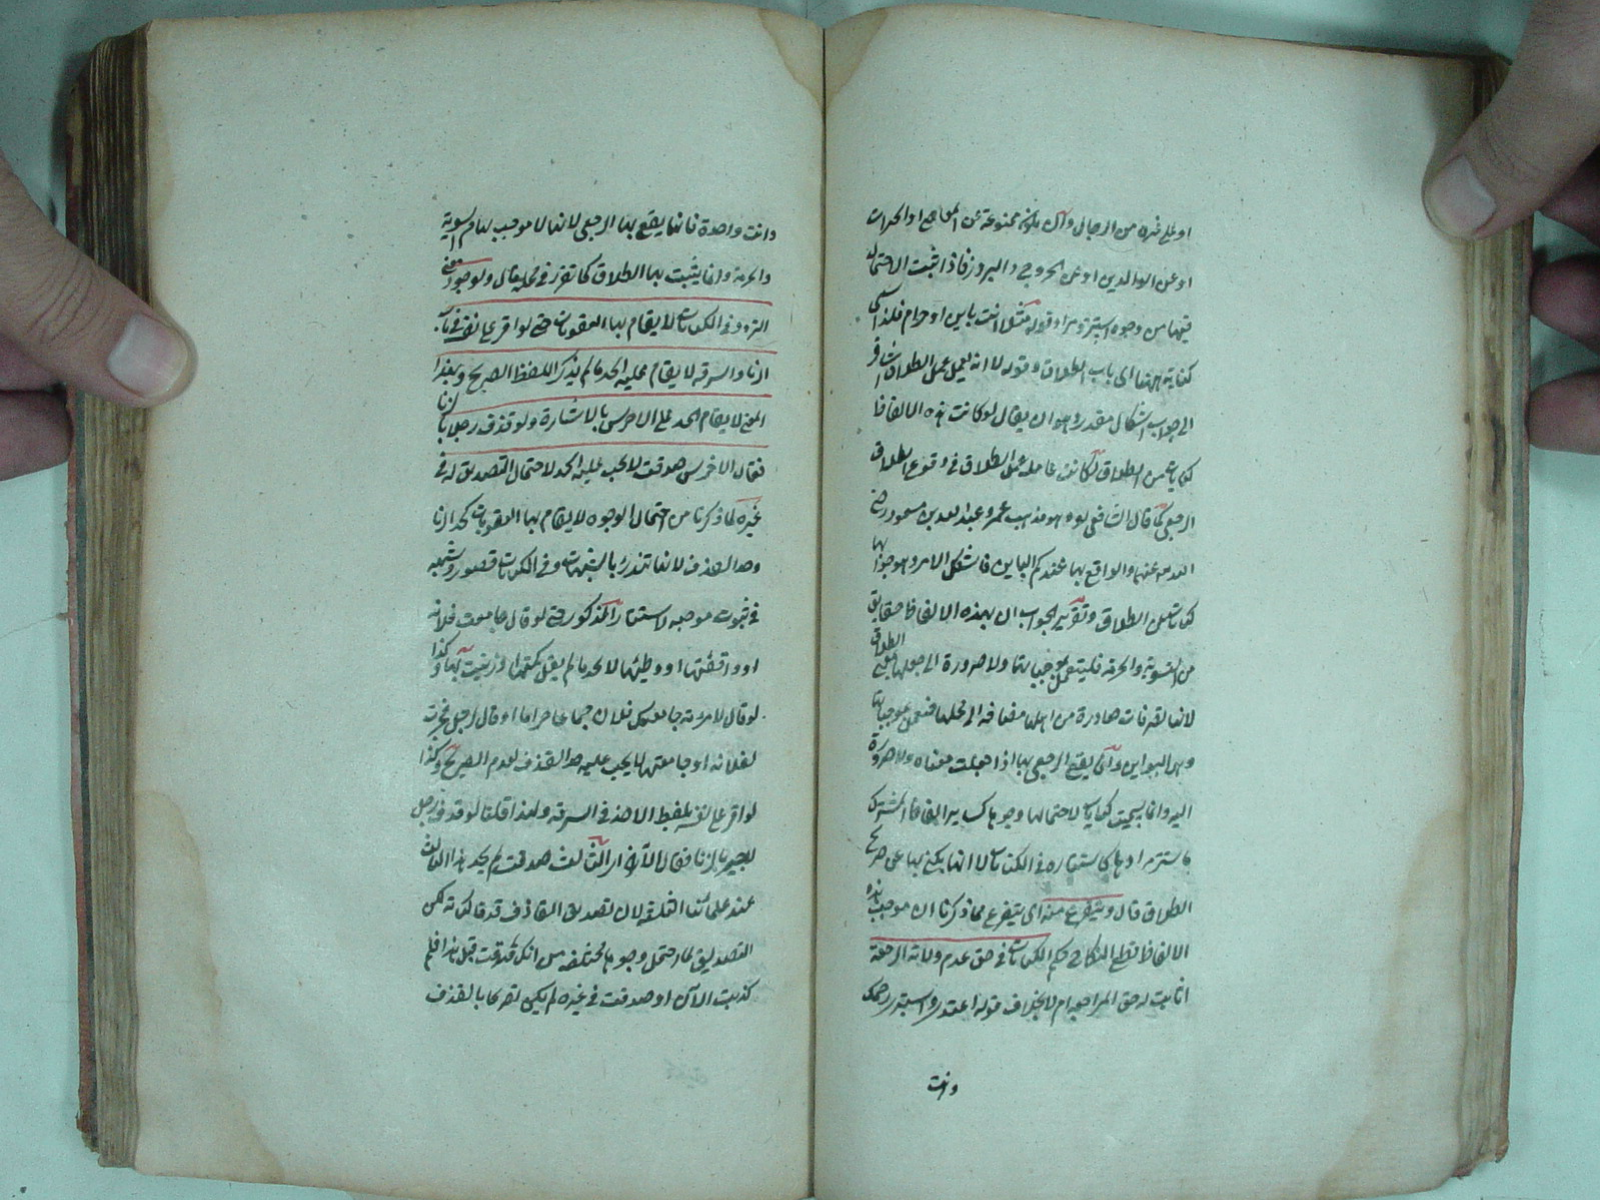 او على غيره من الرجال وان يكون ممنوعة عن المعاصى او الخيرات
او عن الوالدين او عن الخروج والبروز فاذا ثبت الاحتمال
فيها من وجوه استتر مراد قوله مثل انت باين او حرام فلذا سمى
كناية ههنا اى باب الطلاق وقوله لا انه يعمل عمل الطلاق اشاقر
الى جواب اشكال مقدر وهو ان يقال لو كانت هذه الالفاظ
كنايات عن الطلاق لكانت عاملة عمل الطلاق فى وقوع الطلاق
الرجعى كما قال الشافعى وهو مذهب عمر وعبد الله بن مسعود رضى
الله عنهما والواقع بها عندكم الباين فاشكل الامر وهو جوابها
كنايات عن الطلاق وتقرير الجواب ان بهذه الالفاظ حقايق
من البينونة والحرمة فليعمل بموجباتها ولا ضرورة الى جعلها بمعنى الطلاق
لانها تصرفات صادرة من اهلها مضافة الى محلها فتعمل بموجباتها
وهى البواين وانما يقع الرجعى بها اذا جعلت معناه ولا ضرورة
اليه وانما سميت كنايات لاحتمالها وجوها كساير الفاظ المشترك
فاستتر مرادها كاستتاره فى الكنايات لا انها يكنى بها عن صريح
الطلاق قال ويتفرع منه اى يتفرع مما ذكرنا ان موجب هذه
الالفاظ قطع النكاح حكم الكنايات فى حق عدم ولاية الرجعة
اى لا يثبت له حق المراجعة ام لا بخلاف قوله اعتدى واستبرى رحمك
وانت
وانت واحدة فانها يقع بها الرجعى لانها لا موجب لها من البينونة
والحرمة وانما يثبت بها الطلاق كما تقرر فى محله قال ولوجود معنى
التردد فى الكنايات لا يقام بها العقوبات حتى لو اقر على نفسه فى باب
الزنا والسرقة لا يقام عليه الحد ما لم يذكر اللفظ الصريح ولهذا
المعنى لا يقام الحد على الاخرس بالاشارة ولو قذف رجل بالزنا
فقال الاخرس صدقت لا يجب عليه الحد لاحتمال التصديق له فى
غيره لما ذكرنا من احتمال الوجوه لا يقام بها العقوبات كحد الزنا
وحد القذف لانها تندرئ بالشبهات وفى الكنايات قصور وشبهه
فى ثبوت موجبه لاستتار المذكور حتى لو قال جامعت فلانه
او واقعتها او وطئتها لا يحد ما لم يقل نكتها او زنيت بها وكذا
لو قال لامرءته جامعك فلان جماعا حراما او قال لرجل فجرت
لفلانه او جامعتها لا يجب عليه حد القذف لعدم الصريح وكذا
لو اقر على نفسه بلفظ الاخذ فى السرقة ولهذا قلنا لو قذف رجل
لاخر بالزنا فقال الآخر الثالث صدقت لم يحد هذا الثالث
عند علمائنا الثلثة لان تصديق القاذف قد قالت لكن
التصديق لما احتمل وجوها مختلفه من انك صدقت قبل هذا فلم
كذبت الآن او صدقت فى غيره لم يكن تصريحا بالقذف